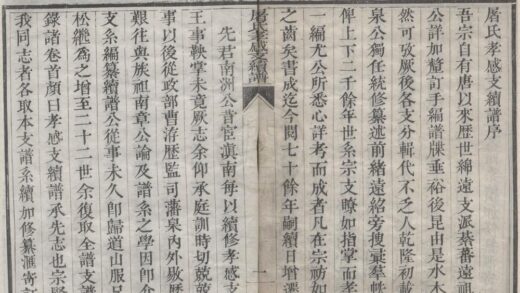 屠氏孝感支續譜序
吾宗自有唐以來歷世綿遠支派蕃番遠祖
公詳加釐訂手編譜牒垂裕後昆由是水木
然可攷厥後各支分輯代不乏人乾隆初載
泉公獨任統修纂述前緒遠紹旁搜彙羣帙
俾上下二千餘年世系宗支瞭如指掌而孝
一編尤公所悉心詳考而成者凡在宗祊如
之齒矣書成迄今閱七十餘年嗣續日增遷
屠氏孝感續譜
一
先君南洲公昔宦滇南每以續修孝感支
王事鞅掌未竟厥志余仰承庭訓時切兢兢
事以後從政部曹洊歷監司藩臬內外敭歷
艱往與族祖南章公論及譜系之學因即介
支系編纂續譜公從事未久卽歸道山服兄
松繼為之增至二十二世余復取全譜支譜
錄諸卷首顏曰孝感支續譜承先志也宗賢
我同志者各取本支譜系續加修纂滙寄